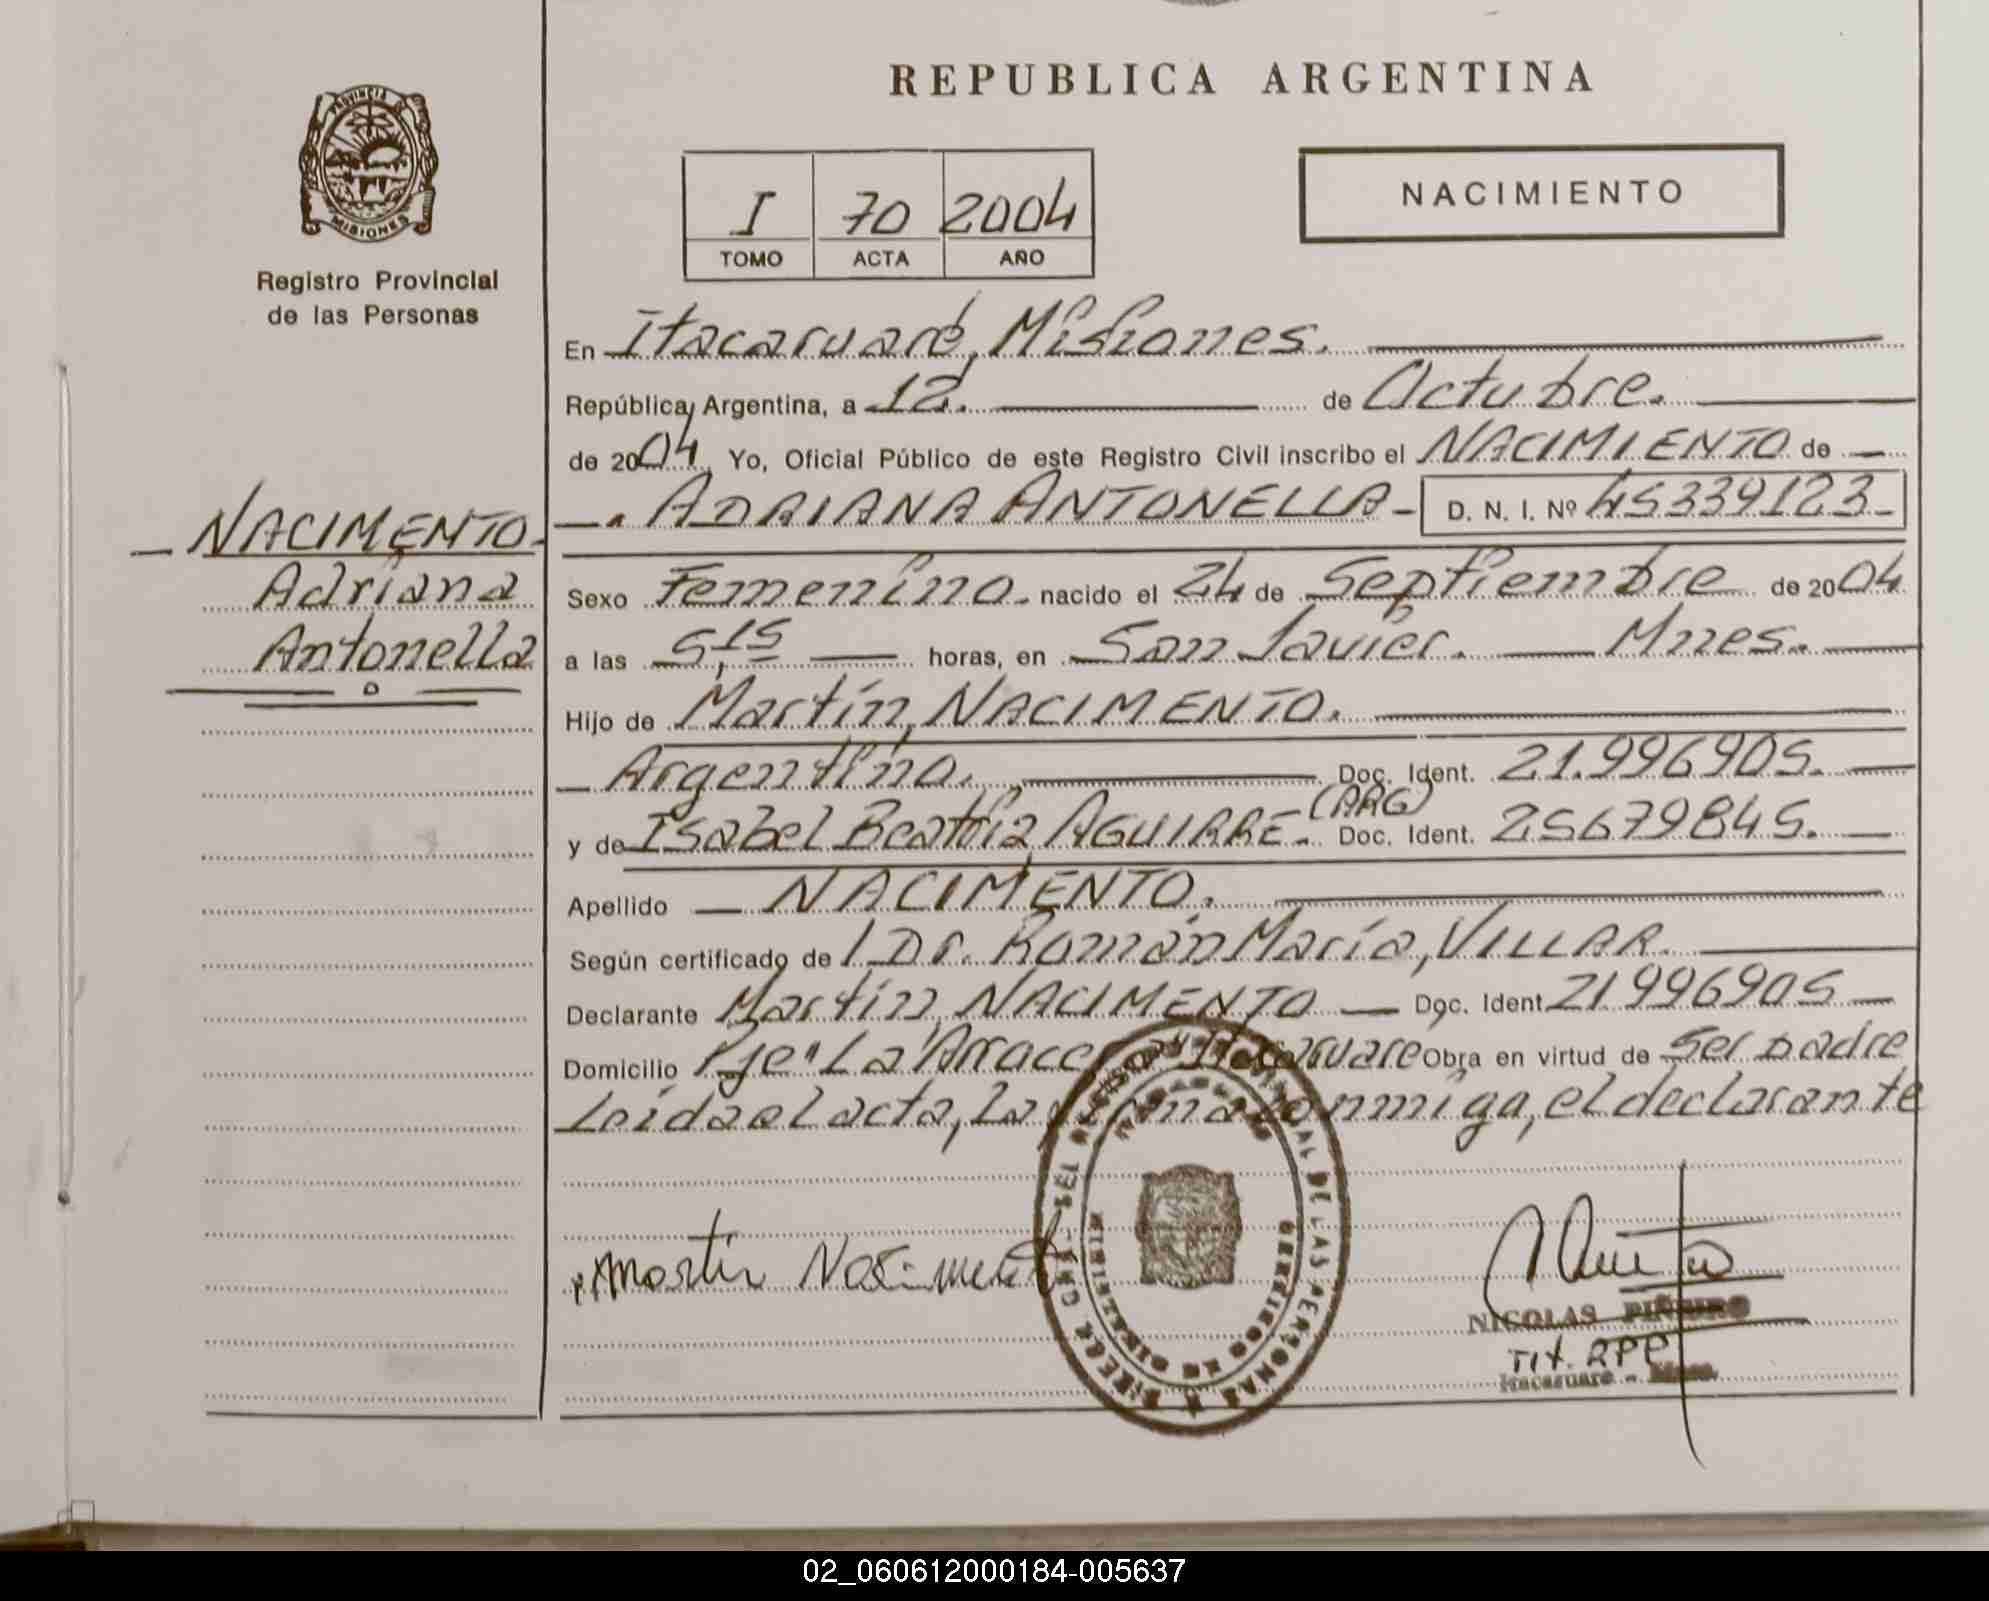 REPUBLICA ARGENTINA
PROVINCIA DE
MISIONES
Registro Provincial
de las Personas
I 70 2004
TOMO ACTA AÑO
NACIMIENTO
En Itacaruaré, Misiones.
República Argentina, a 12. de Octubre.
de 2004, Yo, Oficial Público de este Registro Civil inscribo el NACIMIENTO de
ADRIANA ANTONELLA - D. N. I. Nº 45339123-
NACIMENTO
Adriana
Antonella
Sexo Femenino. nacido el 24 de Septiembre de 2004
a las 5,15 horas, en San Javier. Mnes.
Hijo de Martín, NACIMENTO.
Argentino. Doc. Ident. 21.996905.
y de Isabel Beatriz AGUIRRE. (ARG) Doc. Ident. 25679845.
Apellido NACIMENTO.
Según certificado de l Dr. Román María, VILLAR.
Declarante Martín, NACIMENTO Doc. Ident 21996905
Domicilio Pje "La Itacaruare Obra en virtud de Ser padre
Leída el acta, la conmigo, el declarante
Martin Nacimento
DEL REGISTRO PROVINCIAL DE LAS PERSONAS
MINISTERIO DE GOBIERNO
NICOLAS PIÑEIRO
Tit. RPP
Itacaruare - Mnes.
02_060612000184-005637